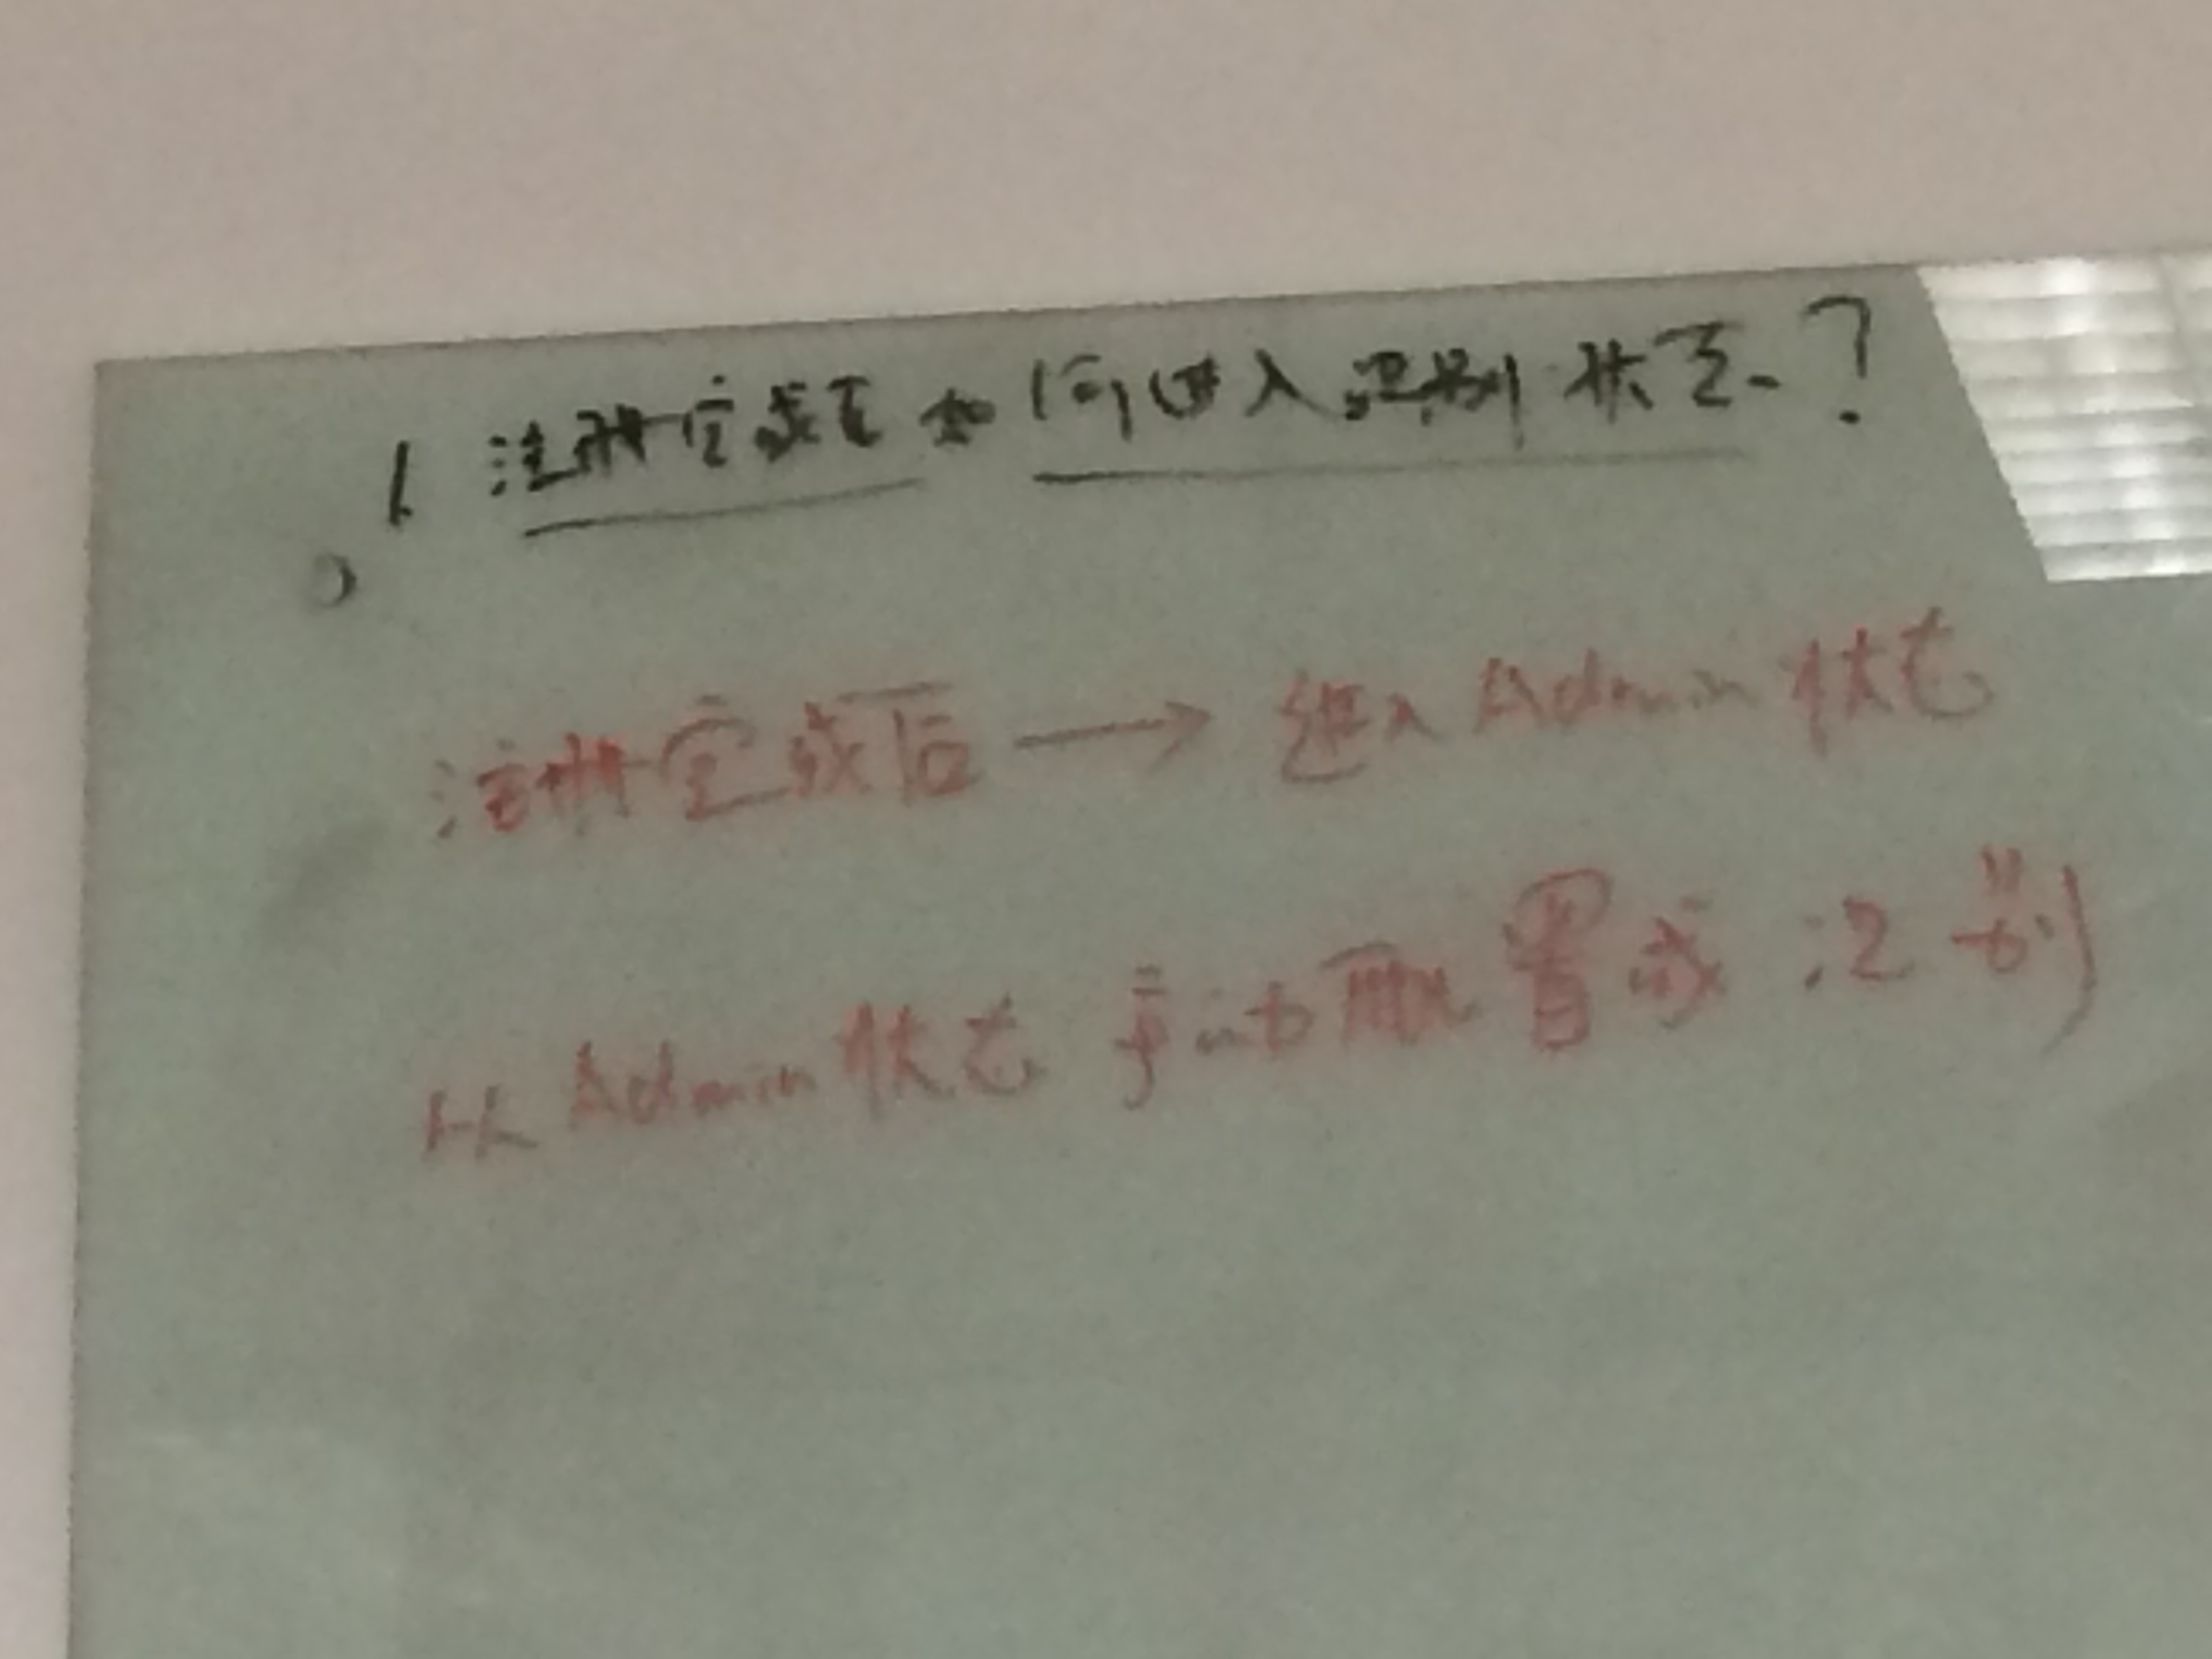 1. 注册完成后如何进入识别状态?
注册完成后 → 进入 Admin 状态
从 Admin 状态 手动配置成 识别